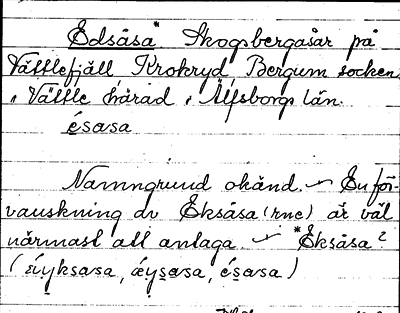 Edsåsa* Skogsbergasår på
Vättlefjäll Krokryd, Bergum socken
i Vättle härad i Älfsborgs län.
ésasa
Namngrund okänd. — En för-
vanskning av Eksåsa (rne) är väl
närmast att antaga. — *Eksåsa?
(áyksasa, áysasa, ésasa)